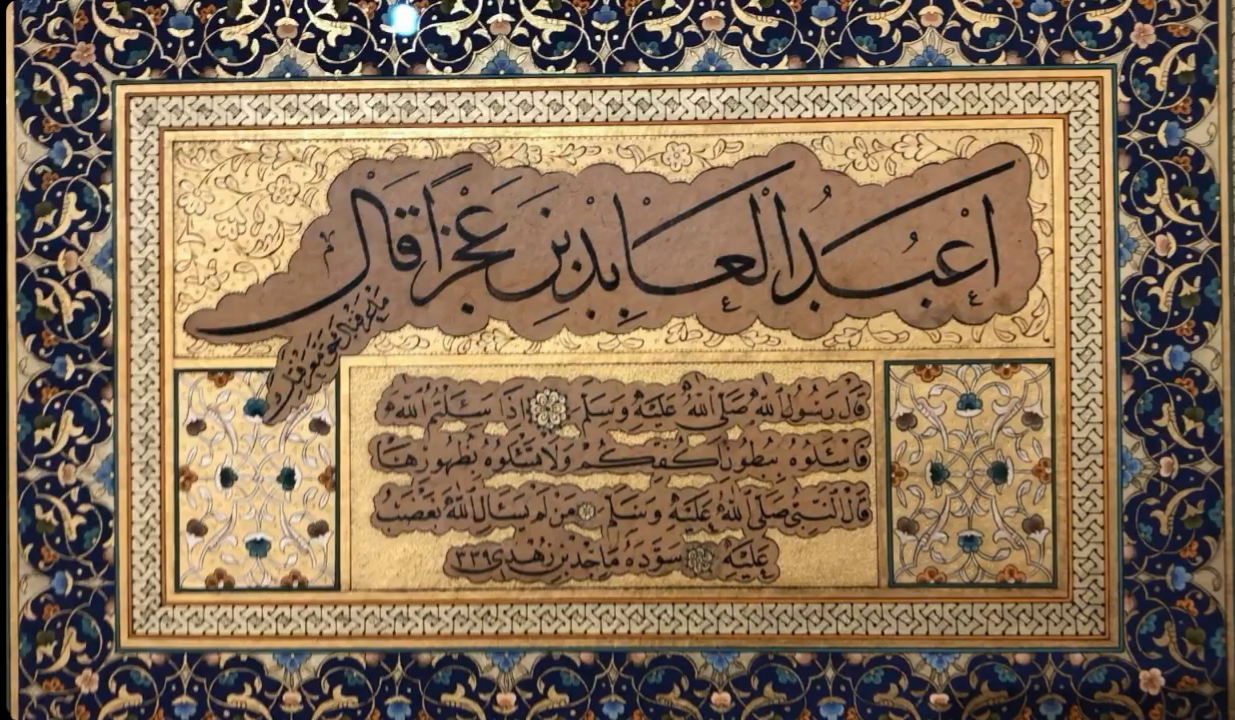 اَعْبُدُ الْعَابِدْبِنْ عَجْزًا قَالَ
قَالَ رَسُولُ اللّٰهِ صَلَّى اللّٰهُ عَلَيْهِ وَسَلَّمَ اِذَا سَئَلْتُمُ اللّٰهَ
فَاسْئَلُوهُ بِبُطُونِ اَكُفِّكُمْ وَلَا تَسْئَلُوهُ بِظُهُورِهَا
قَالَ النَّبِيُّ صَلَّى اللّٰهُ عَلَيْهِ وَسَلَّمَ مَنْ لَمْ يَسْأَلِ اللّٰهَ يَغْضَبْ
عَلَيْهِ سَوَّدَهُ مَاجِد بْن زُهْدِي ١٣٣٩